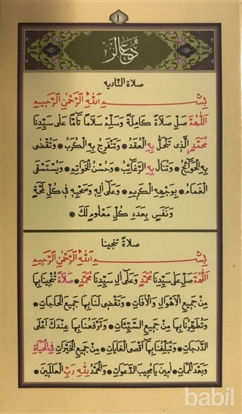 ١
دعالر
صلاة النارية
بِسْــمِ اللهِ الرَّحْمٰنِ الرَّحِيمِ
اَللّٰهُمَّ صَلِّ صَلَاةً كَامِلَةً وَسَلِّمْ سَلَامًا تَامًّا عَلٰى سَيِّدِنَا
مُحَمَّدٍ الَّذِي تَنْحَلُّ بِهِ الْعُقَدُ وَتَنْفَرِجُ بِهِ الْكُرَبُ وَتُقْضٰى
بِهِ الْحَوَائِجُ وَتُنَالُ بِهِ الرَّغَائِبُ وَحُسْنُ الْخَوَاتِمِ وَيُسْتَسْقَى
الْغَمَامُ بِوَجْهِهِ الْكَرِيمِ وَعَلٰى اٰلِهِ وَصَحْبِهِ فِي كُلِّ لَمْحَةٍ
وَنَفَسٍ بِعَدَدِ كُلِّ مَعْلُومٍ لَكَ
صلاة تنجينا
بِسْــمِ اللهِ الرَّحْمٰنِ الرَّحِيمِ
اَللّٰهُمَّ صَلِّ عَلٰى سَيِّدِنَا مُحَمَّدٍ وَعَلٰى اٰلِ سَيِّدِنَا مُحَمَّدٍ صَلَاةً تُنْجِينَا بِهَا
مِنْ جَمِيعِ الْاَهْوَالِ وَالْاٰفَاتِ وَتَقْضِي لَنَا بِهَا جَمِيعَ الْحَاجَاتِ
وَتُطَهِّرُنَا بِهَا مِنْ جَمِيعِ السَّيِّئَاتِ وَتَرْفَعُنَا بِهَا عِنْدَكَ اَعْلَى
الدَّرَجَاتِ وَتُبَلِّغُنَا بِهَا اَقْصَى الْغَايَاتِ مِنْ جَمِيعِ الْخَيْرَاتِ فِي الْحَيَاةِ
وَبَعْدَ الْمَمَاتِ اٰمِينَ يَا مُجِيبَ الدَّعَوَاتِ وَالْحَمْدُ لِلّٰهِ رَبِّ الْعَالَمِينَ
babil